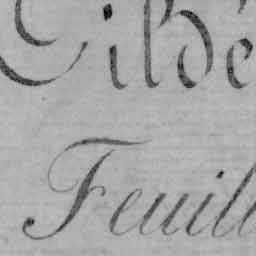 Gildé
Feuill